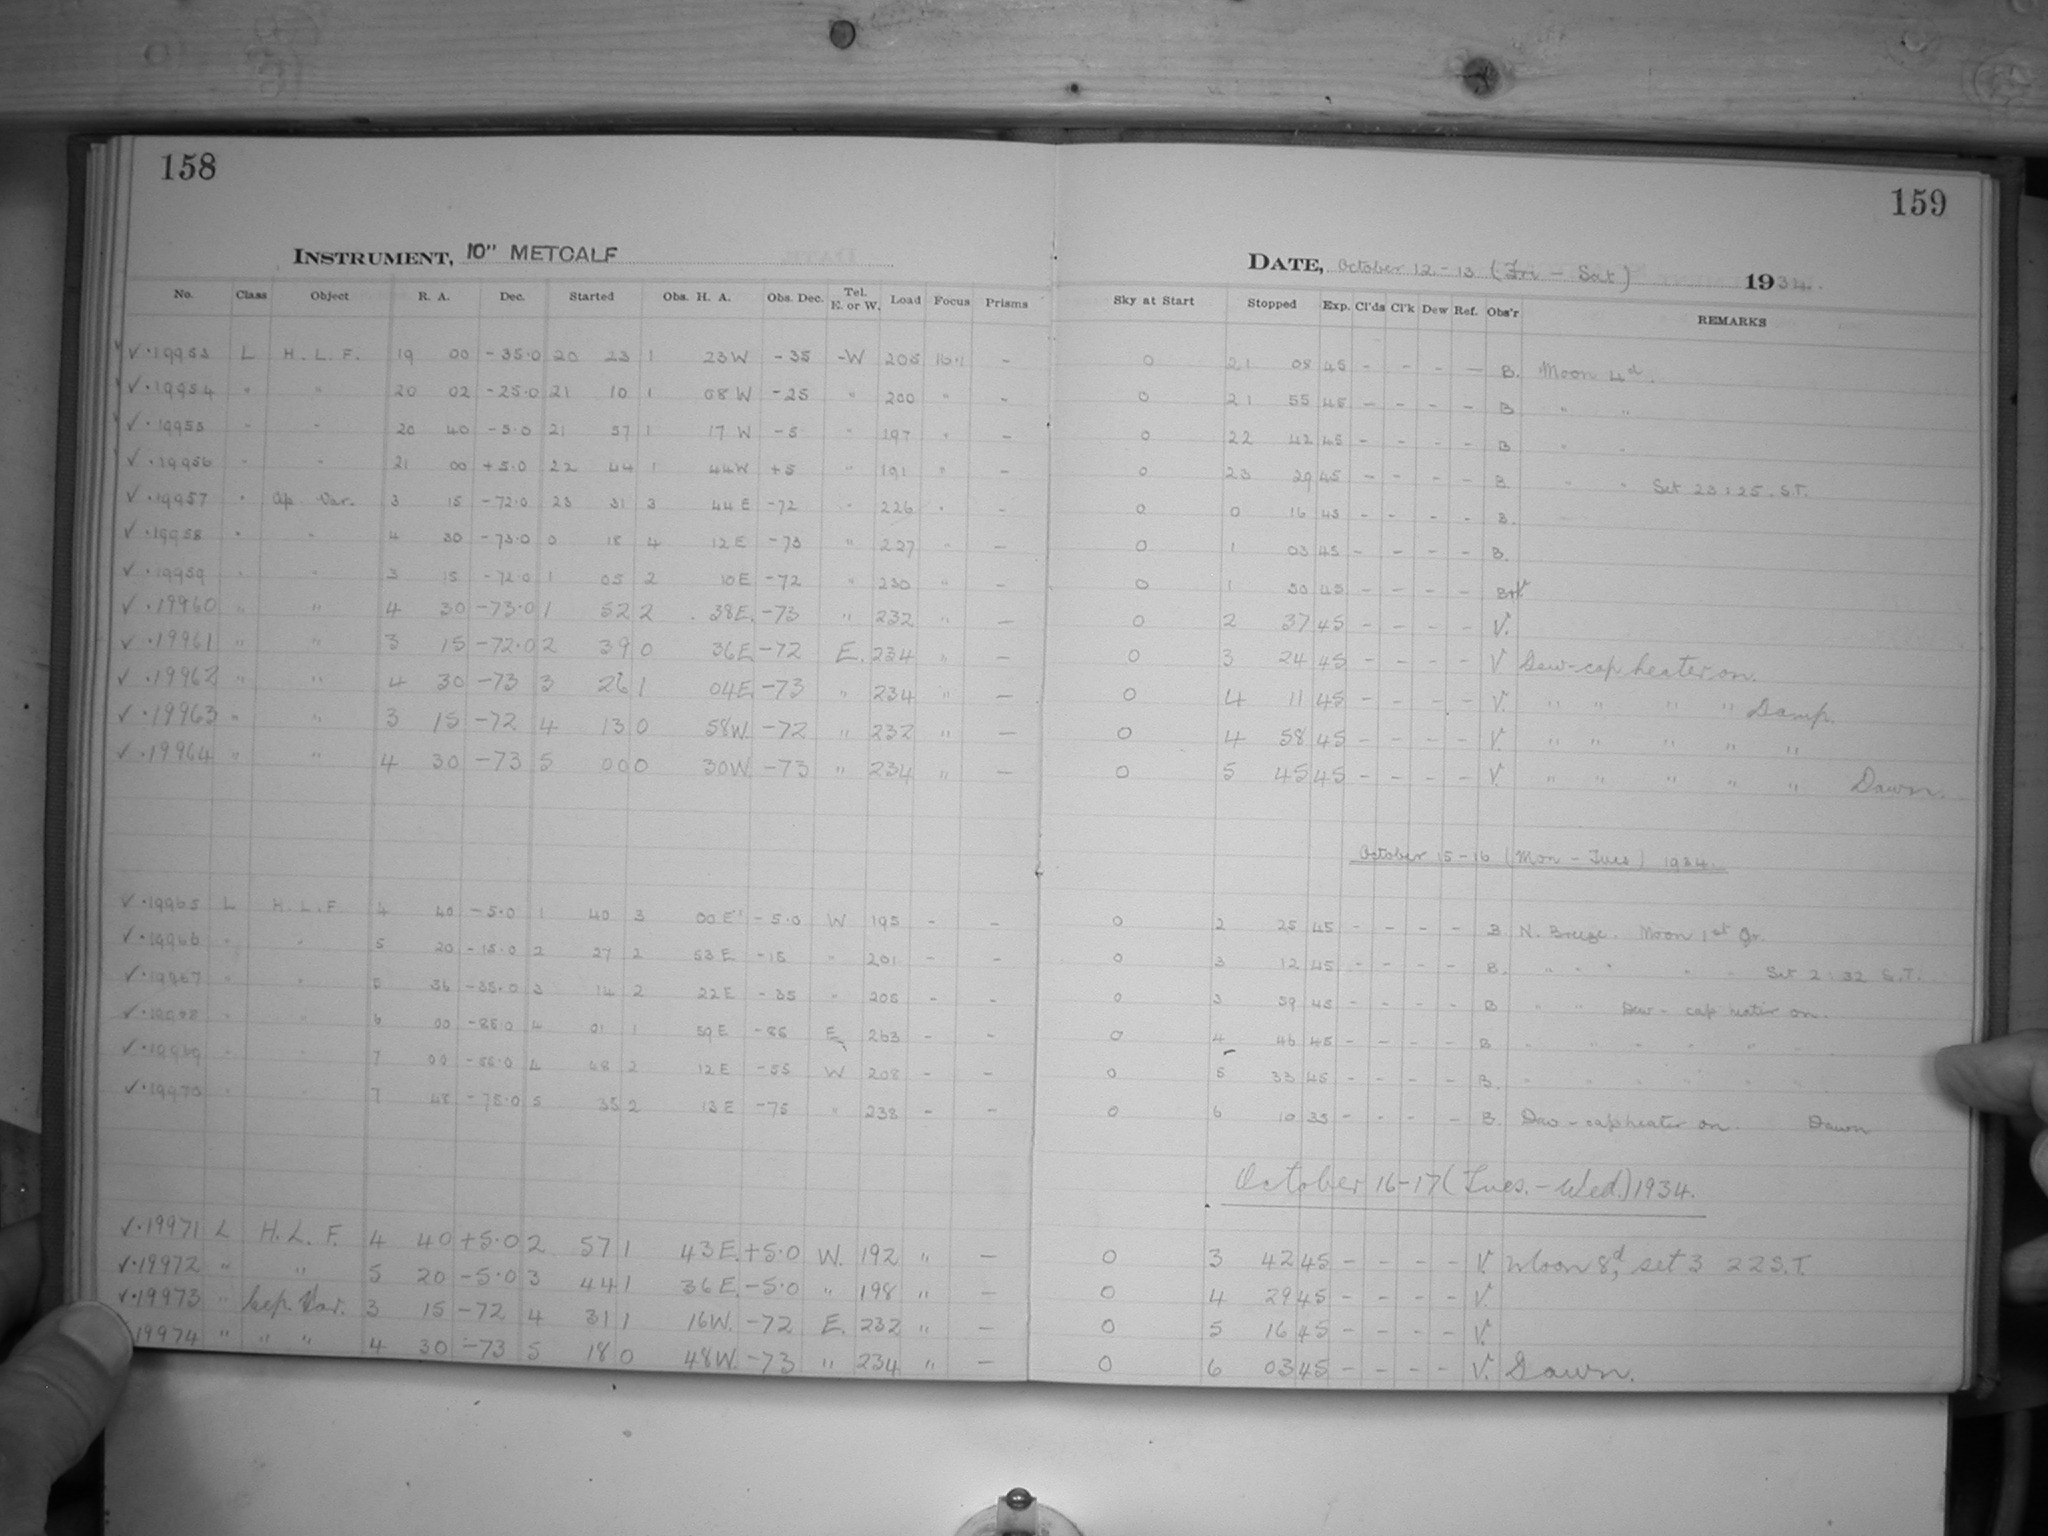 158
INSTRUMENT, 10" METCALF
No. Class Object R. A. Dec. Started Obs. H. A. Obs. Dec. Tel. E. or W. Load Focus Prisms
✓ · 19953 L H. L. F. 19 00 -35.0 20 23 1 23 W -35 -W 205 16.1 -
✓ · 19954 " " 20 02 -25.0 21 10 1 08 W -25 " 200 " -
✓ · 19955 " " 20 40 -5.0 21 57 1 17 W -5 " 197 " -
✓ · 19956 " " 21 00 +5.0 22 44 1 44W +5 " 191 " -
✓ · 19957 " Cep. Var. 3 15 -72.0 23 31 3 44 E -72 " 226 " -
✓ · 19958 " " 4 30 -73.0 0 18 4 12 E -73 " 227 " -
✓ · 19959 " " 3 15 -72.0 1 05 2 10 E -72 " 230 " -
✓ · 19960 " " 4 30 -73.0 1 52 2 38E. -73 " 232 " -
✓ · 19961 " " 3 15 -72.0 2 39 0 36E -72 E. 234 " -
✓ · 19962 " " 4 30 -73 3 26 1 04E. -73 " 234 " -
✓ · 19963 " " 3 15 -72 4 13 0 58W. -72 " 232 " -
✓ · 19964 " " 4 30 -73 5 00 0 30W. -73 " 234 " -
✓ · 19965 L H. L. F 4 40 -5.0 1 40 3 00 E -5.0 W 195 - -
✓ · 19966 " " 5 20 -15.0 2 27 2 53 E -15 " 201 - -
✓ · 19967 " " 5 36 -35.0 3 14 2 22 E -35 " 205 - -
✓ · 19968 " " 6 00 -85.0 4 01 1 59 E -85 E 263 - -
✓ · 19969 " " 7 00 -55.0 4 48 2 12 E -55 W 208 - -
✓ · 19970 " " 7 48 -75.0 5 35 2 13 E -75 " 238 - -
✓ · 19971 L H. L. F. 4 40 +5.0 2 57 1 43 E. +5.0 W. 192 " -
✓ · 19972 " " 5 20 -5.0 3 44 1 36 E. -5.0 " 198 " -
✓ · 19973 " Cep. Var. 3 15 -72 4 31 1 16W. -72 E. 232 " -
19974 " " " 4 30 -73 5 18 0 48W. -73 " 234 " -
159
DATE, October 12 - 13 (Fri - Sat) 1934.
Sky at Start Stopped Exp. Cl'ds Cl'k Dew Ref. Obs'r REMARKS
0 21 08 45 - - - - B. Moon 4d.
0 21 55 45 - - - - B " "
0 22 42 45 - - - - B " "
0 23 29 45 - - - - B. " " Set 23:25. S.T.
0 0 16 45 - - - - B.
0 1 03 45 - - - - B.
0 1 50 45 - - - - B+V
0 2 37 45 - - - - V.
0 3 24 45 - - - - V Dew-cap heater on.
0 4 11 45 - - - - V. " " " " Damp.
0 4 58 45 - - - - V. " " " " "
0 5 45 45 - - - - V. " " " " " Dawn.
October 15 - 16 (Mon - Tues) 1934.
0 2 25 45 - - - - B N. Breeze. Moon 1st Qr.
0 3 12 45 - - - - B. " " " " " Set 2:32 S.T.
0 3 59 45 - - - - B " " Dew - cap heater on.
0 4 46 45 - - - - B " " " " " "
0 5 33 45 - - - - B. " " " " " "
0 6 10 35 - - - - B. Dew - cap heater on. Dawn
October 16-17 (Tues. - Wed.) 1934.
0 3 42 45 - - - - V. Moon 8d, set 3 22 S.T.
0 4 29 45 - - - - V.
0 5 16 45 - - - - V.
0 6 03 45 - - - - V. Dawn.